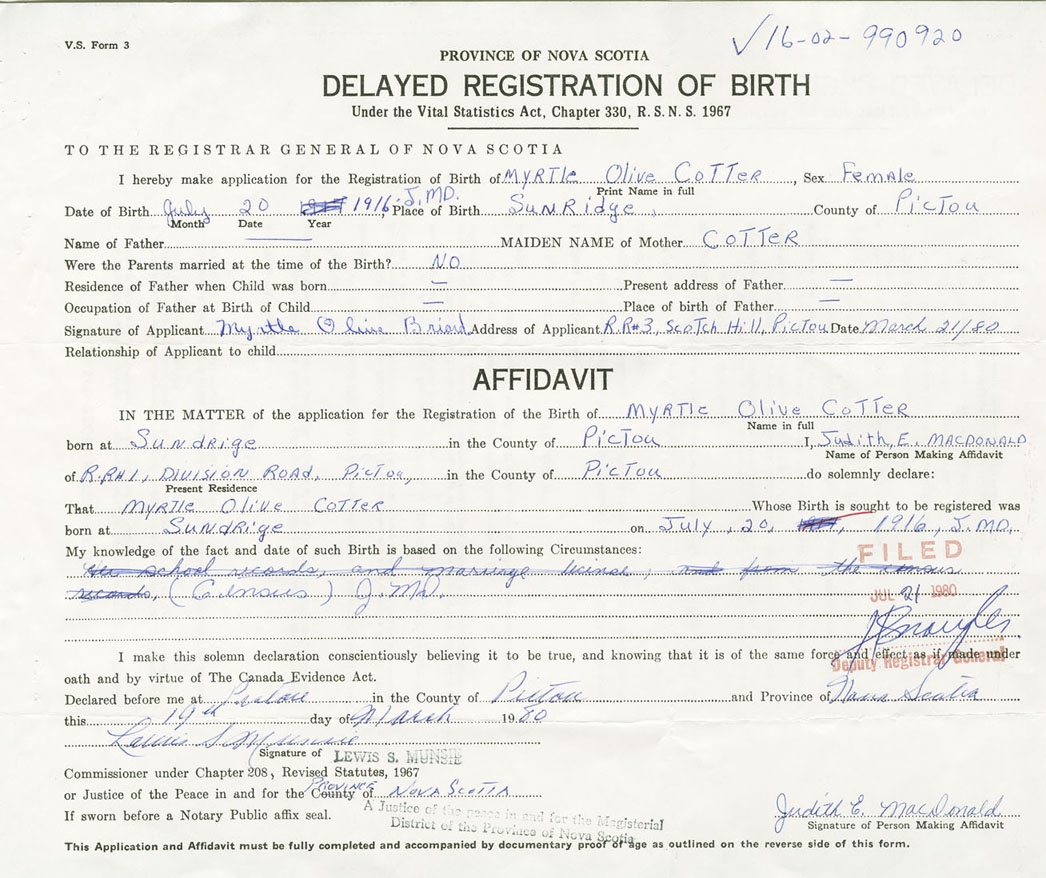 V.S. Form 3
✓16-02-990920
PROVINCE OF NOVA SCOTIA
DELAYED REGISTRATION OF BIRTH
Under the Vital Statistics Act, Chapter 330, R. S. N. S. 1967
TO THE REGISTRAR GENERAL OF NOVA SCOTIA
I hereby make application for the Registration of Birth of MYRTle Olive CoTTer, Sex Female
Print Name in full
Date of Birth July 20 1916 J.MD. Place of Birth SunRidge, County of PicTou
Month Date Year
Name of Father MAIDEN NAME of Mother COTTER
Were the Parents married at the time of the Birth? NO
Residence of Father when Child was born — Present address of Father —
Occupation of Father at Birth of Child — Place of birth of Father —
Signature of Applicant Myrtle Olive Briand Address of Applicant R.R#3, ScoTch Hill, PicTou Date March 21/80
Relationship of Applicant to child
AFFIDAVIT
IN THE MATTER of the application for the Registration of the Birth of MYRTle Olive CoTTER
Name in full
born at Sundrige in the County of PicTou I, Judith, E. MACDONALD
Name of Person Making Affidavit
of R.R#1, DIVISION ROAD, PicTou, in the County of PicTou do solemnly declare:
Present Residence
That MYRTle Olive CoTTER Whose Birth is sought to be registered was
born at SundRige on July, 20, 1916, J.MD.
My knowledge of the fact and date of such Birth is based on the following Circumstances:
school records, and marriage license, and from the census
records, (Census) J.MD.
FILED
JUL 21 1980
Deputy Registrar General
I make this solemn declaration conscientiously believing it to be true, and knowing that it is of the same force and effect as if made under
oath and by virtue of The Canada Evidence Act.
Declared before me at Pictou in the County of Pictou and Province of Nova Scotia
this 19th day of March 1980
Lewis S Munsie
Signature of LEWIS S. MUNSIE
Commissioner under Chapter 208, Revised Statutes, 1967
or Justice of the Peace in and for the County of PROVINCE NOVA SCOTIA
A Justice of the peace in and for the Magisterial
District of the Province of Nova Scotia
If sworn before a Notary Public affix seal.
Judith E. MacDonald
Signature of Person Making Affidavit
This Application and Affidavit must be fully completed and accompanied by documentary proof of age as outlined on the reverse side of this form.